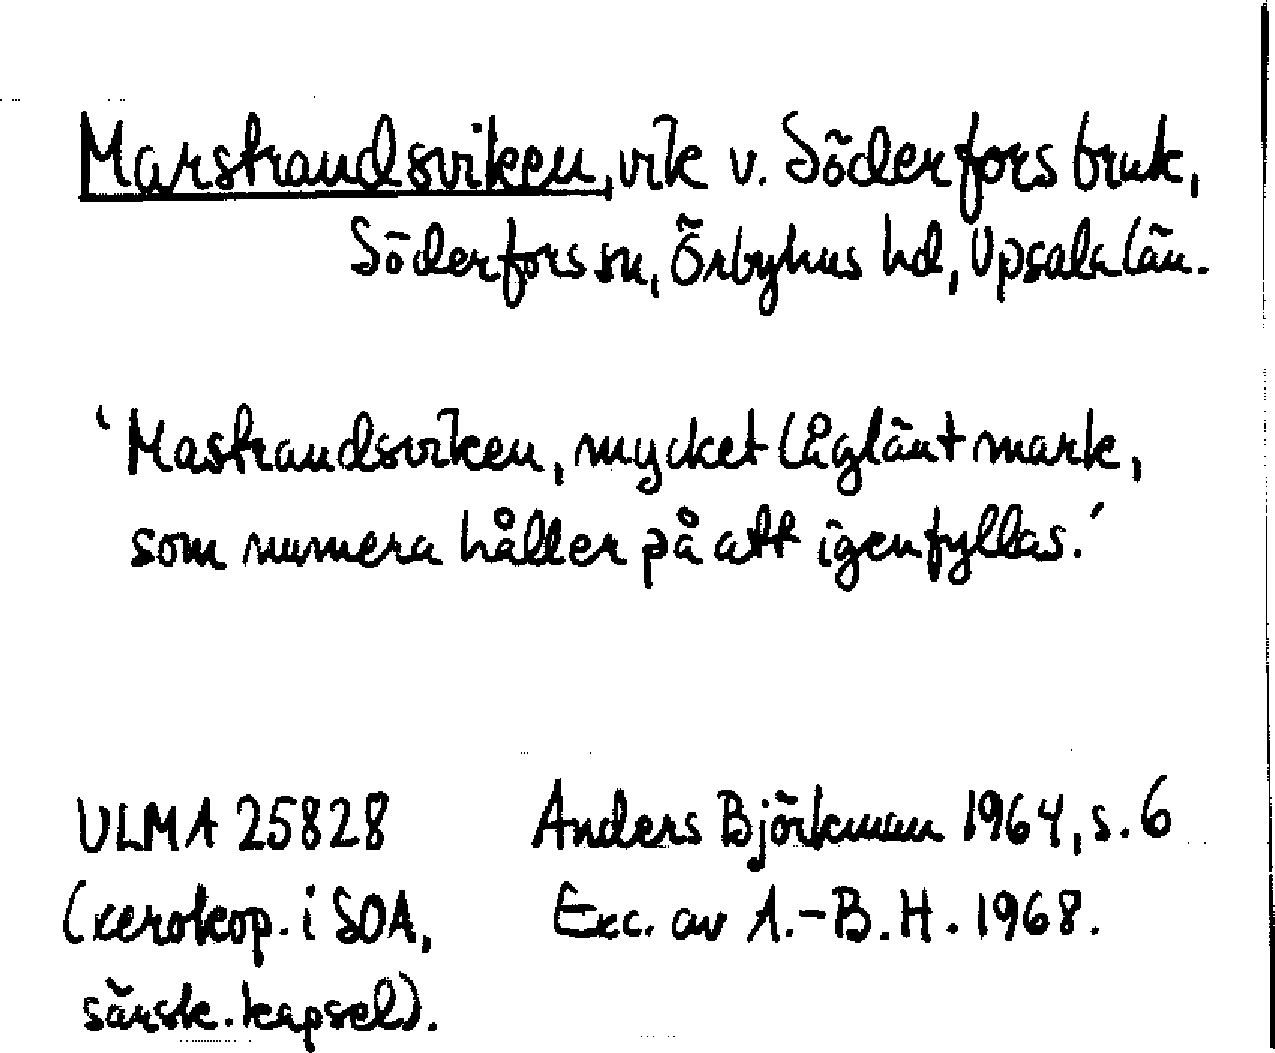 Marstrandsviken, vik v. Söderfors bruk,
Söderfors sn, Örbyhus hd, Upsala län.
'Mastrandsviken, mycket låglänt mark,
som numera håller på att igenfyllas.'
ULMA 25828 Anders Björkman 1964, s. 6
(xerokop. i SOA, Exc. av A.-B.H. 1968.
särsk. kapsel).